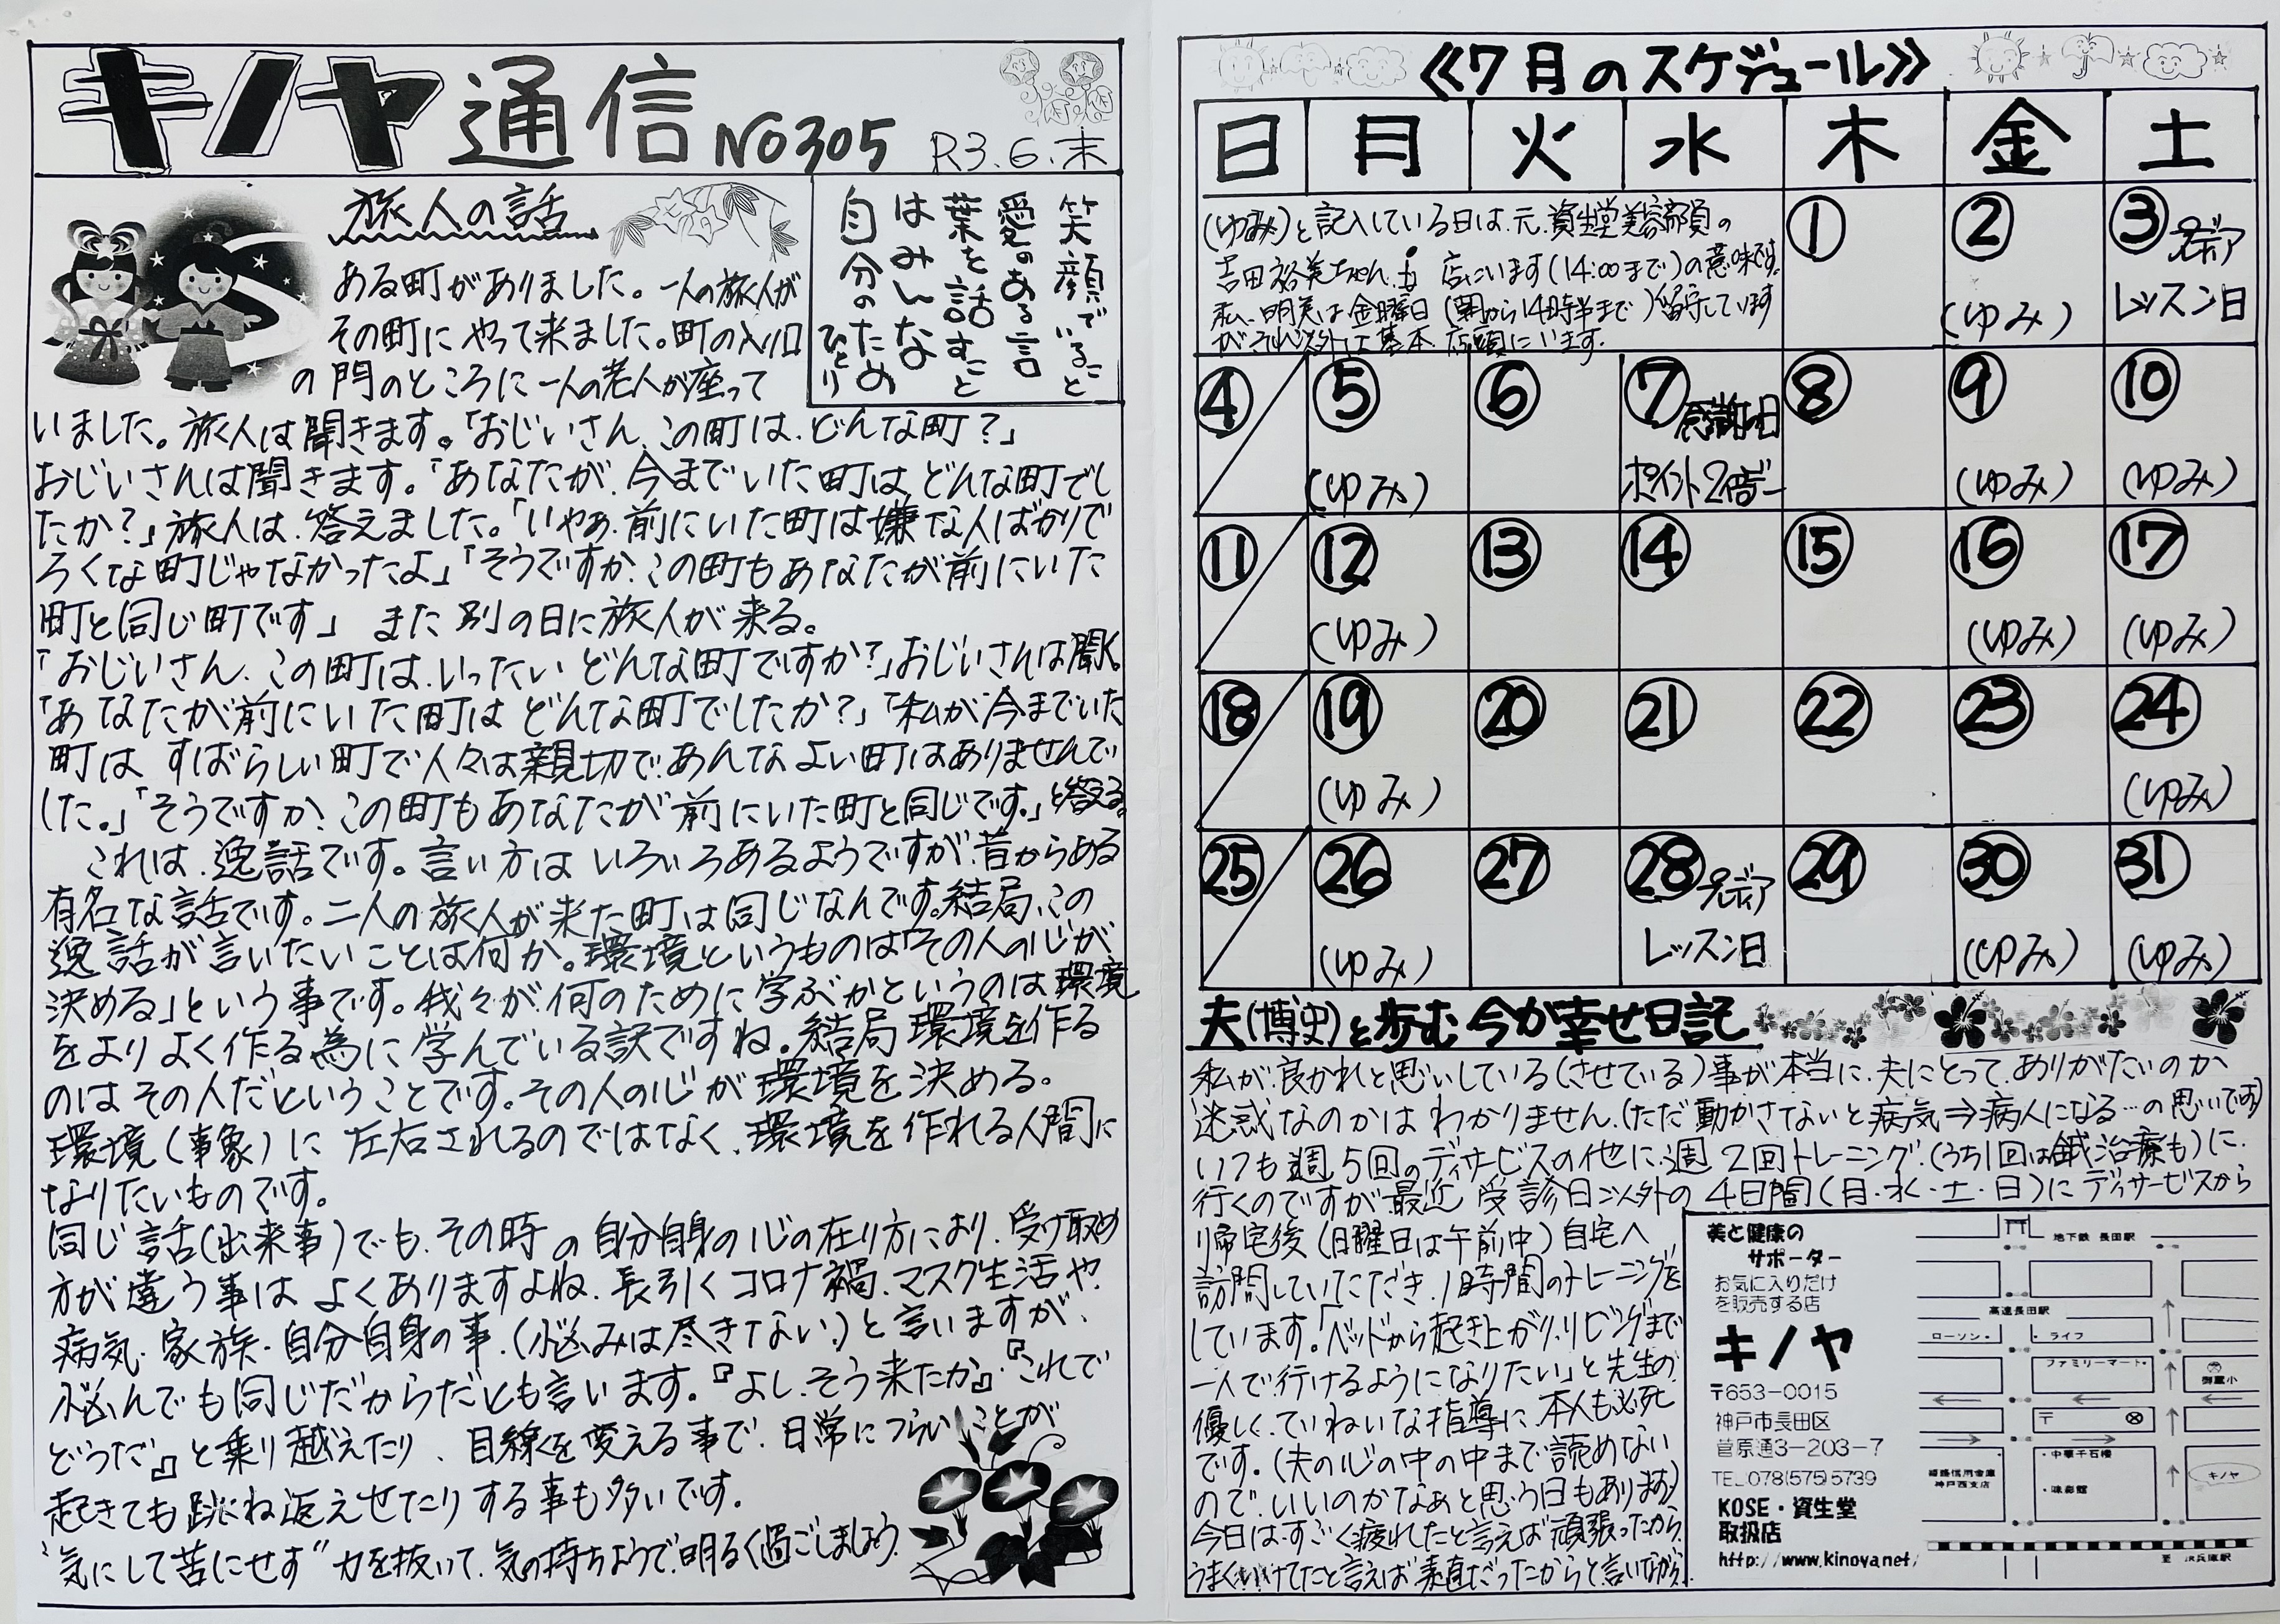 キノヤ通信 NO305 R3.6.末
笑顔でいること
愛のある言
葉を話すこと
はみんな
自分のため
ひとり
旅人の話
ある町がありました。一人の旅人が
その町にやって来ました。町の入り口
の門のところに一人の老人が座って
いました。旅人は聞きます。「おじいさん、この町は、どんな町?」
おじいさんは聞きます。「あなたが、今までいた町は、どんな町でし
たか?」旅人は、答えました。「いやぁ、前にいた町は嫌な人ばかりで
ろくな町じゃなかったよ」「そうですか、この町もあなたが前にいた
町と同じ町です」 また別の日に旅人が来る。
「おじいさん、この町は、いったいどんな町ですか?」おじいさんは聞く。
「あなたが前にいた町はどんな町でしたか?」「私が今までいた
町は すばらしい町で人々は親切で、あんなよい町はありませんで
した。」「そうですか、この町もあなたが前にいた町と同じです。」と答える。
これは、逸話です。言い方はいろいろあるようですが、昔からある
有名な話です。二人の旅人が来た町は同じなんです。結局、この
逸話が言いたいことは何か。環境というものは「その人の心が
決める」という事です。我々が、何のために学ぶかというのは環境
をよりよく作る為に学んでいる訳ですね。結局環境を作る
のはその人だということです。その人の心が環境を決める。
環境(事象)に左右されるのではなく、環境を作れる人間に
なりたいものです。
同じ話(出来事)でも、その時の自分自身の心の在り方により、受け取め
方が違う事はよくありますよね、長引くコロナ禍、マスク生活や、
病気・家族・自分自身の事、(悩みは尽きてない)と言いますが、
悩んでも同じだからだとも言います。『よし、そう来たか』・『これで
どうだ』と乗り越えたり、目線を変える事で、日常につらいことが
起きても跳ね返えせたりする事も多いです。
“気にして苦にせず”力を抜いて、気の持ちようで、明るく過ごしましょう。
《7月のスケジュール》
日 月 火 水 木 金 土
(ゆみ)と記入している日は、元、資生堂美容部員の
吉田裕美ちゃんも 店にいます(14:00まで)の意味です。
私、明美は金曜日(朝から14時半まで)留守しています
が、それ以外は基本、店頭にいます。
① ② ③プレディア
(ゆみ) レッスン日
④ ⑤ ⑥ ⑦感謝の日 ⑧ ⑨ ⑩
(ゆみ) ポイント2倍デー (ゆみ) (ゆみ)
⑪ ⑫ ⑬ ⑭ ⑮ ⑯ ⑰
(ゆみ) (ゆみ) (ゆみ)
⑱ ⑲ ⑳ ㉑ ㉒ ㉓ ㉔
(ゆみ) (ゆみ)
㉕ ㉖ ㉗ ㉘プレディア ㉙ ㉚ ㉛
(ゆみ) レッスン日 (ゆみ) (ゆみ)
夫(博史)と歩む今が幸せ日記
私が、良かれと思いしている(させている)事が本当に、夫にとって、ありがたいのか
迷惑なのかはわかりません、(ただ動かさないと病気⇒病人になる…の思いです)
いつも週5回のデイサービスの他に、週2回トレーニング、(うち1回は鍼治療も)に、
行くのですが、最近 受診日以外の4日間(月・水・土・日)にデイサービスから
帰宅後(日曜日は午前中)自宅へ
訪問していただき、1時間のトレーニングを
しています。「ベッドから起き上がり、リビングまで
一人で行けるようになりたい」と先生の
優しく、ていねいな指導に、本人も必死
です。(夫の心の中の中まで読めない
ので、いいのかなぁと思う日もあります)
今日は、すごく疲れたと言えば頑張ったから、
うまくいけてたと言えば素直だったからと言いながら、
美と健康の
サポーター
お気に入りだけ
を販売する店
キノヤ
〒653-0015
神戸市長田区
菅原通3-203-7
TEL078(575)5739
KOSE・資生堂
取扱店
http://www.kinoya.net/
地下鉄 長田駅
高速長田駅
ローソン
ライフ
ファミリーマート
御蔵小
〒
中華千石楼
姫路信用金庫
神戸西支店
味彩館
キノヤ
至 JR兵庫駅